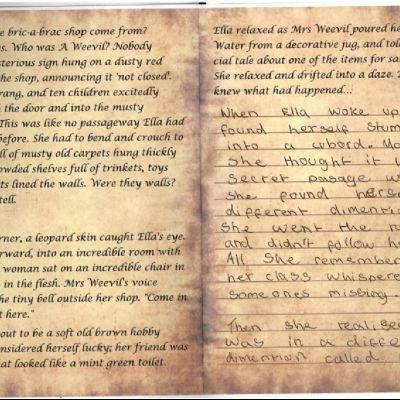 e bric-a-brac shop come from?
s. Who was A Weevil? Nobody
sterious sign hung on a dusty red
the shop, announcing it 'not closed'.
rang, and ten children excitedly
h the door and into the musty
This was like no passageway Ella had
before. She had to bend and crouch to
ll of musty old carpets hung thickly
owded shelves full of trinkets, toys
ts lined the walls. Were they walls?
tell.
rner, a leopard skin caught Ella's eye.
rward, into an incredible room with
woman sat on an incredible chair in
in the flesh. Mrs Weevil's voice
he tiny bell outside her shop. "Come in
t here."
out to be a soft old brown hobby
nsidered herself lucky; her friend was
hat looked like a mint green toilet.
Ella relaxed as Mrs Weevil poured he
Water from a decorative jug, and tol
cial tale about one of the items for sa
She relaxed and drifted into a daze. I
knew what had happened...
When Ella woke up
found herself stum
into a cubord. Mo
she thought it w
secret passage w
she found herse
different dimention
She went the r
and didn't follow he
All she remember
her class whispere
someones missing.
Then she realise
was in a diffe
dimention called